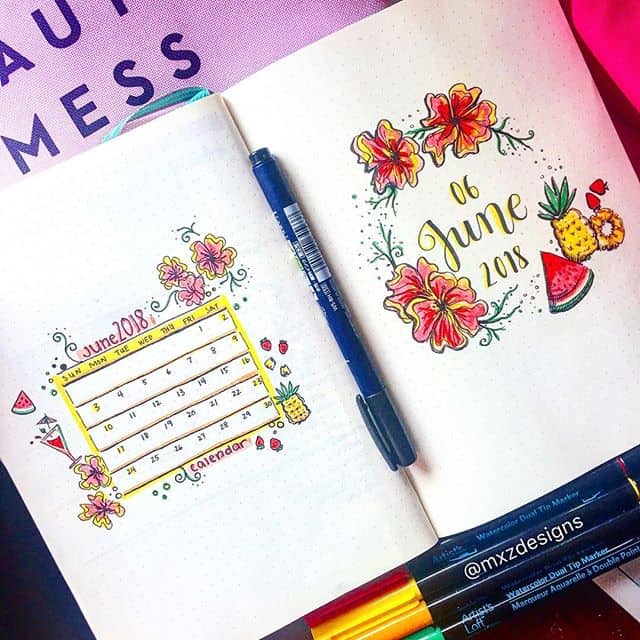 AUT
MESS
June 2018
SUN MON TUE WED THU FRI SAT
1 2
3 4 5 6 7 8 9
10 11 12 13 14 15 16
17 18 19 20 21 22 23
24 25 26 27 28 29 30
calendar
06
June
2018
Watercolor Dual Tip Marker
@mxzdesigns
Artist's
Loft
Watercolor Dual Tip Marker
Marqueur Aquarelle à Double Pointe